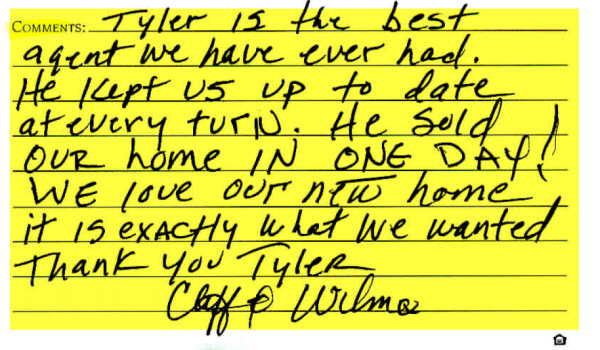 COMMENTS: Tyler is the best
agent we have ever had.
He kept us up to date
at every turn. He sold
OUR home IN ONE DAY!
WE love our new home,
it is exactly what we wanted
Thank you Tyler
Cliff & Wilma